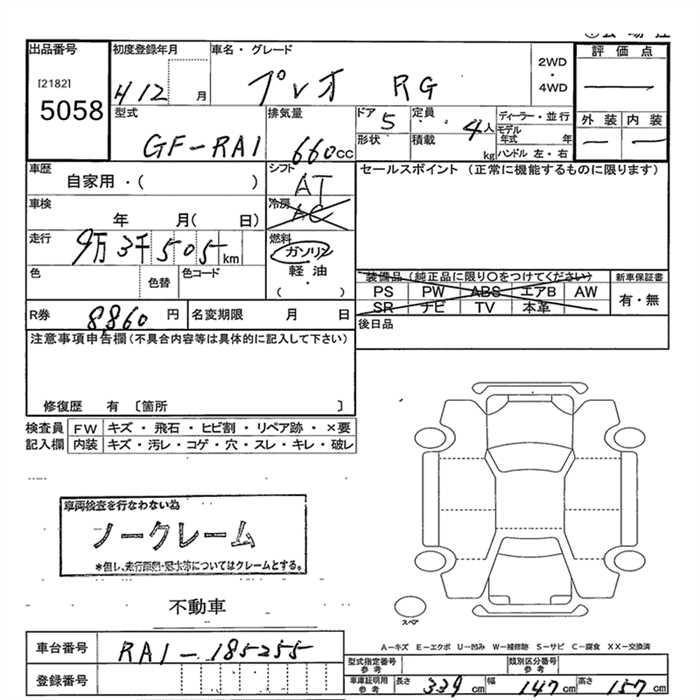 出品番号 初度登録年月 車名・グレード 2WD ・ 4WD 評価点
[2182]
5058
H12 月 プレオ RG
型式 排気量 ドア 定員 ディーラー・並行 外装 内装
GF-RA1 660CC 5 4人 モデル年式 年
形状 積載 kg ハンドル 左・右
車歴 シフト セールスポイント (正常に機能するものに限ります)
自家用・( ) AT
車検 冷房
年 月( 日) AC
走行 9万3千505km 燃料
ガソリン
軽油
( )
色 色替 色コード
装備品(純正品に限り○をつけてください) 新車保証書
PS PW ABS エアB AW 有・無
SR ナビ TV 本革
R券 8,860 円 名変期限 月 日 後日品
注意事項申告欄(不具合内容等は具体的に記入して下さい)
修復歴 有 〔箇所 〕
検査員 FW キズ・飛石・ヒビ割・リペア跡・×要
記入欄 内装 キズ・汚レ・コゲ・穴・スレ・キレ・破レ
車両検査を行なわない為
ノークレーム
*但し、走行距離・冠水等についてはクレームとする。
不動車
スペア
A-キズ E-エクボ U-凹み W-補修跡 S-サビ C-腐食 XX-交換済
車台番号 RA1-185255
型式指定番号 参考 類別区分番号 参考
登録番号 車庫証明用 参考 長さ 339cm 幅 147cm 高さ 157cm